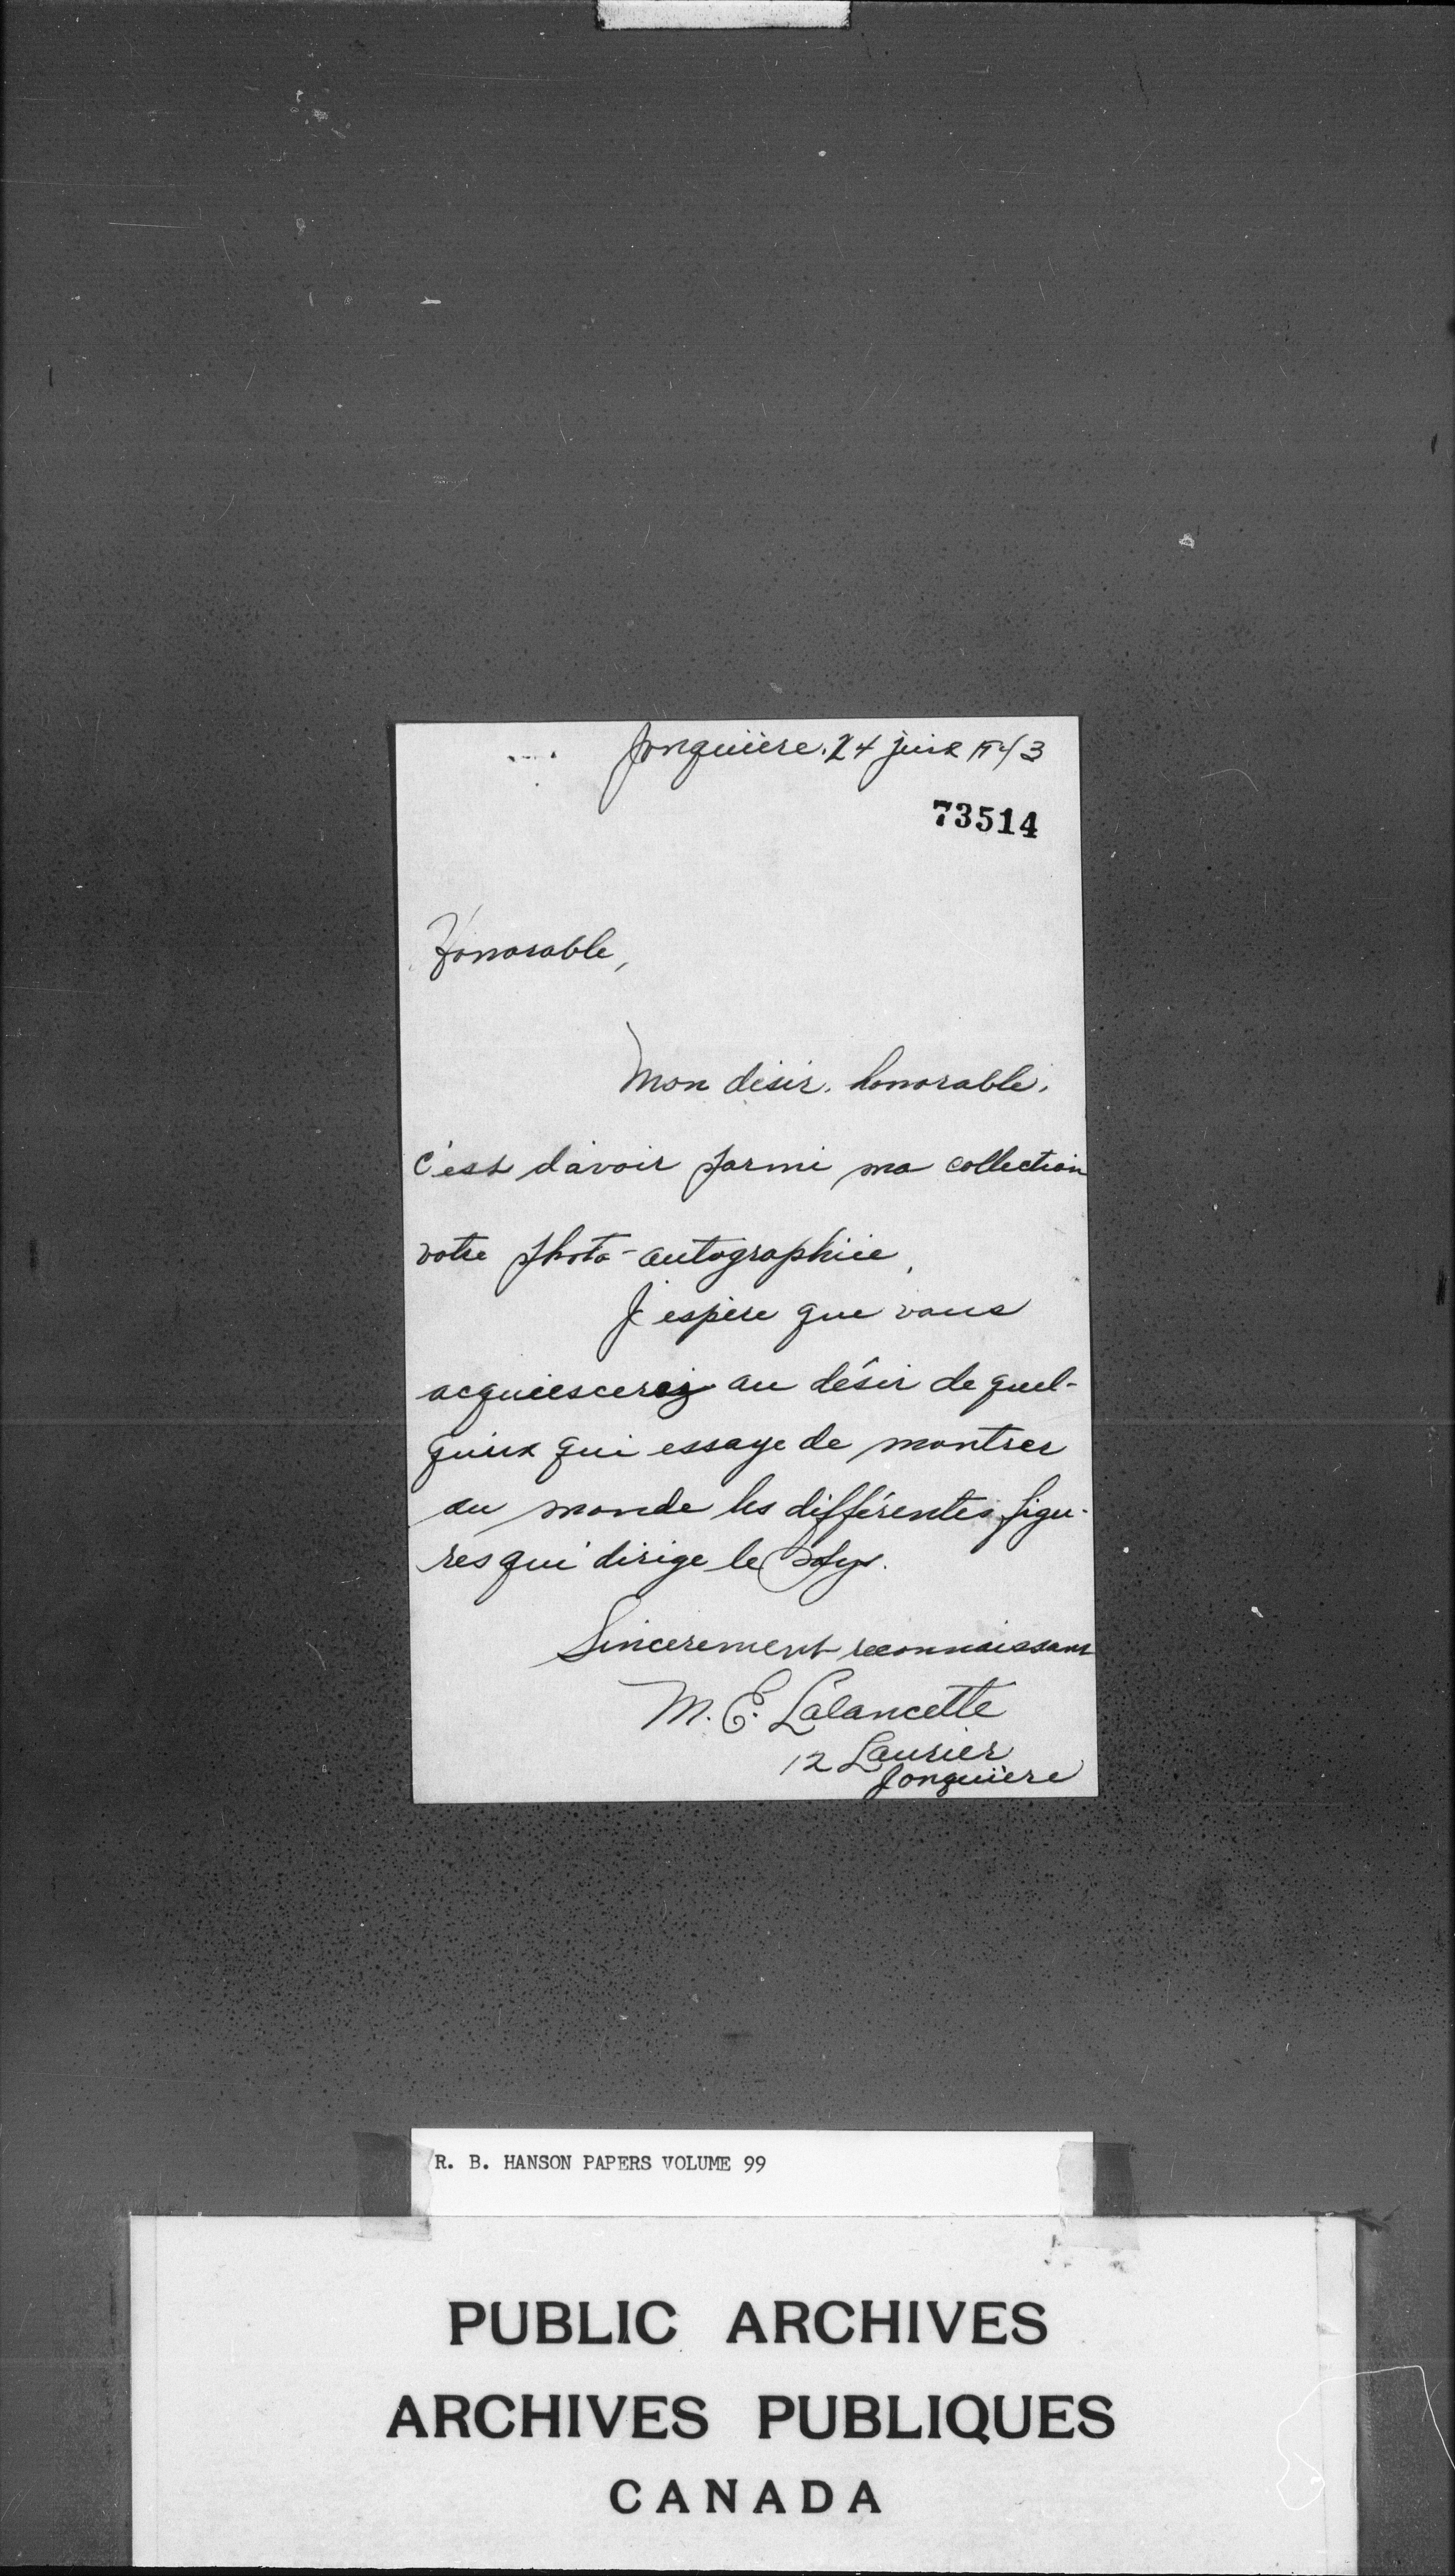 Jonquière, 24 juin 1943
73514
Honorable,
Mon désir, honorable,
c'est d'avoir parmi ma collection
votre photo-autographiée,
J'espère que vous
acquiescerez au désir de quel-
qu'un qui essaye de montrer
au monde les différentes figu-
res qui dirige le Pays.
Sincerement reconnaissant
M. E. Lalancette
12 Laurier
Jonquière
R. B. HANSON PAPERS VOLUME 99
PUBLIC ARCHIVES
ARCHIVES PUBLIQUES
CANADA